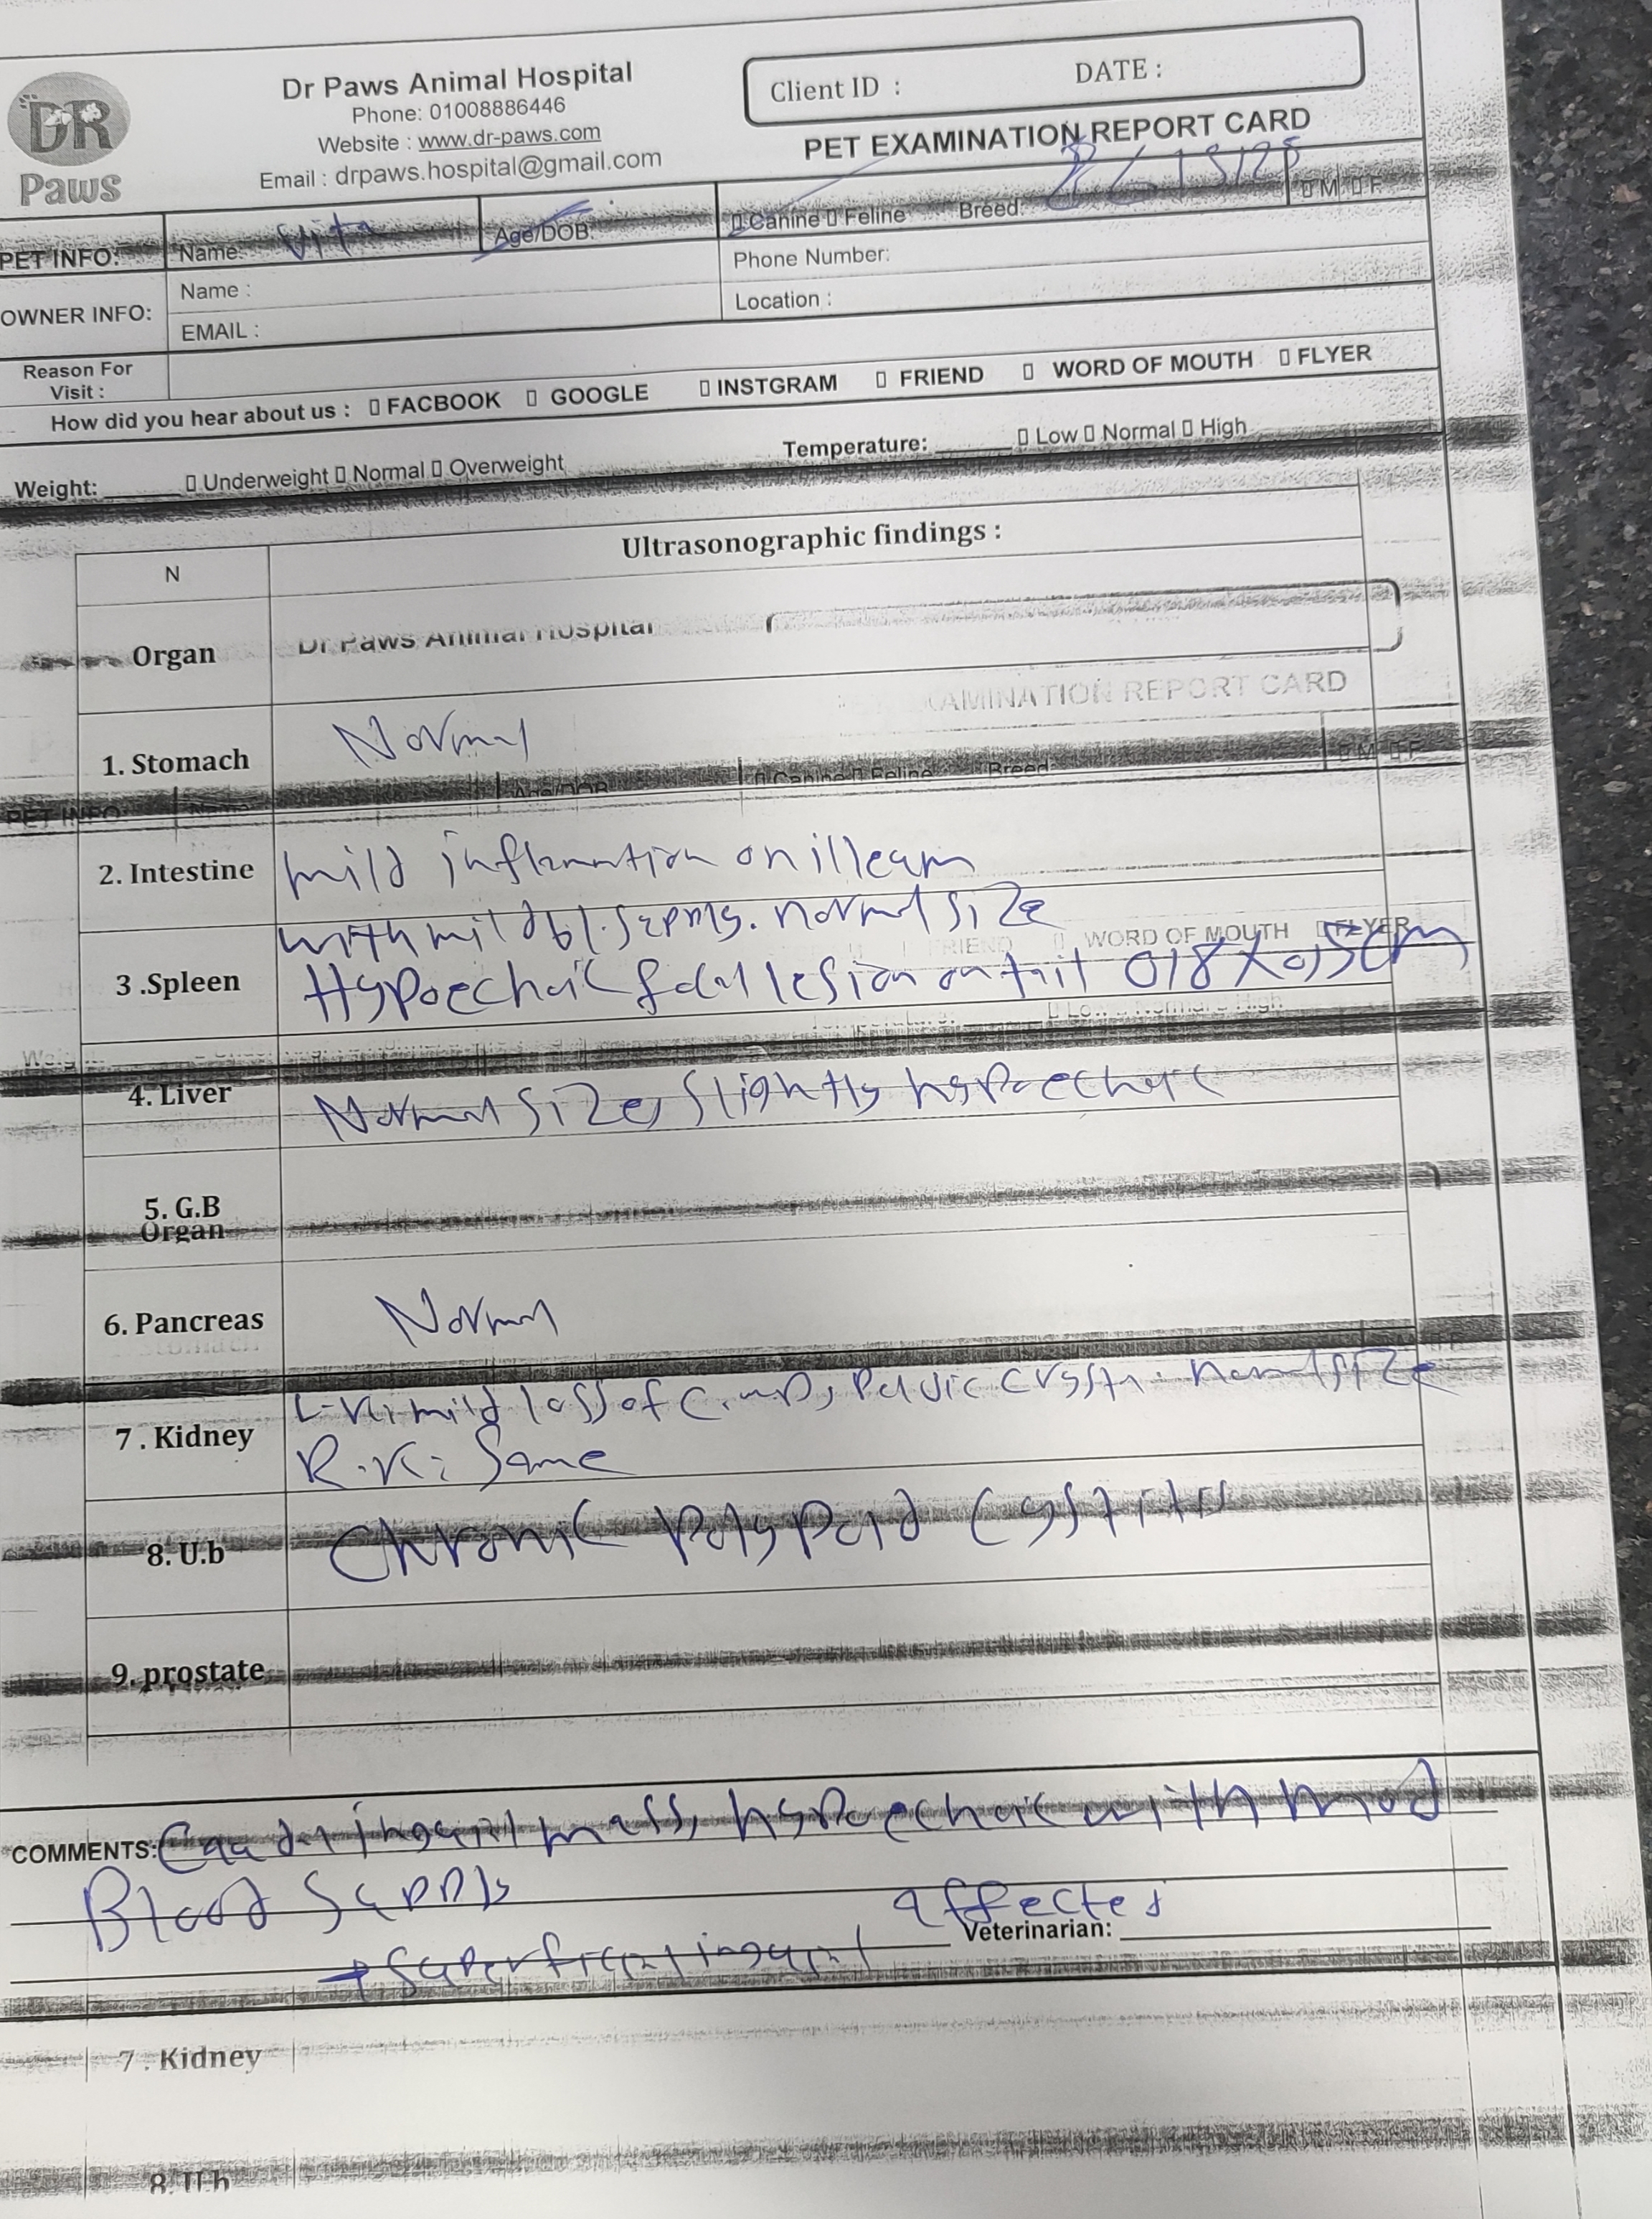 DR
Paws
Dr Paws Animal Hospital
Phone: 01008886446
Website : www.dr-paws.com
Email : drpaws.hospital@gmail.com
Client ID : DATE :
PET EXAMINATION REPORT CARD
PET INFO: Name: Vita Age/DOB: Canine Feline Breed: M F
OWNER INFO: Name : Phone Number:
EMAIL : Location :
Reason For Visit :
How did you hear about us : FACBOOK GOOGLE INSTGRAM FRIEND WORD OF MOUTH FLYER
Weight: Underweight Normal Overweight Temperature: Low Normal High
N Ultrasonographic findings :
Organ Dr Paws Animal Hospital
AMINATION REPORT CARD
1. Stomach Normal
PET INFO: Name Age/DOB Canine Feline Breed: M F
2. Intestine mild inflammtion on illeam
with mild bl. supply. normal size
FRIEND WORD OF MOUTH FLYER
3 .Spleen Hypoechoic focal lesion on tail 0,8 X 0,5 cm
Low Normal High
Weight:
4. Liver Normal size, slightly hypoechoic
5. G.B
Organ
6. Pancreas Normal
Stomach
L.K: mild loss of C.M.D, pelvic crysts. normal size
7 . Kidney
R.K: Same
8. U.b Chronic polypoid cystitis
9. prostate
COMMENTS: inguinal mass, hypoechoic with mod
Blood Supply
affected
Veterinarian:
→ superficial inguinal
7 . Kidney
8. U.b